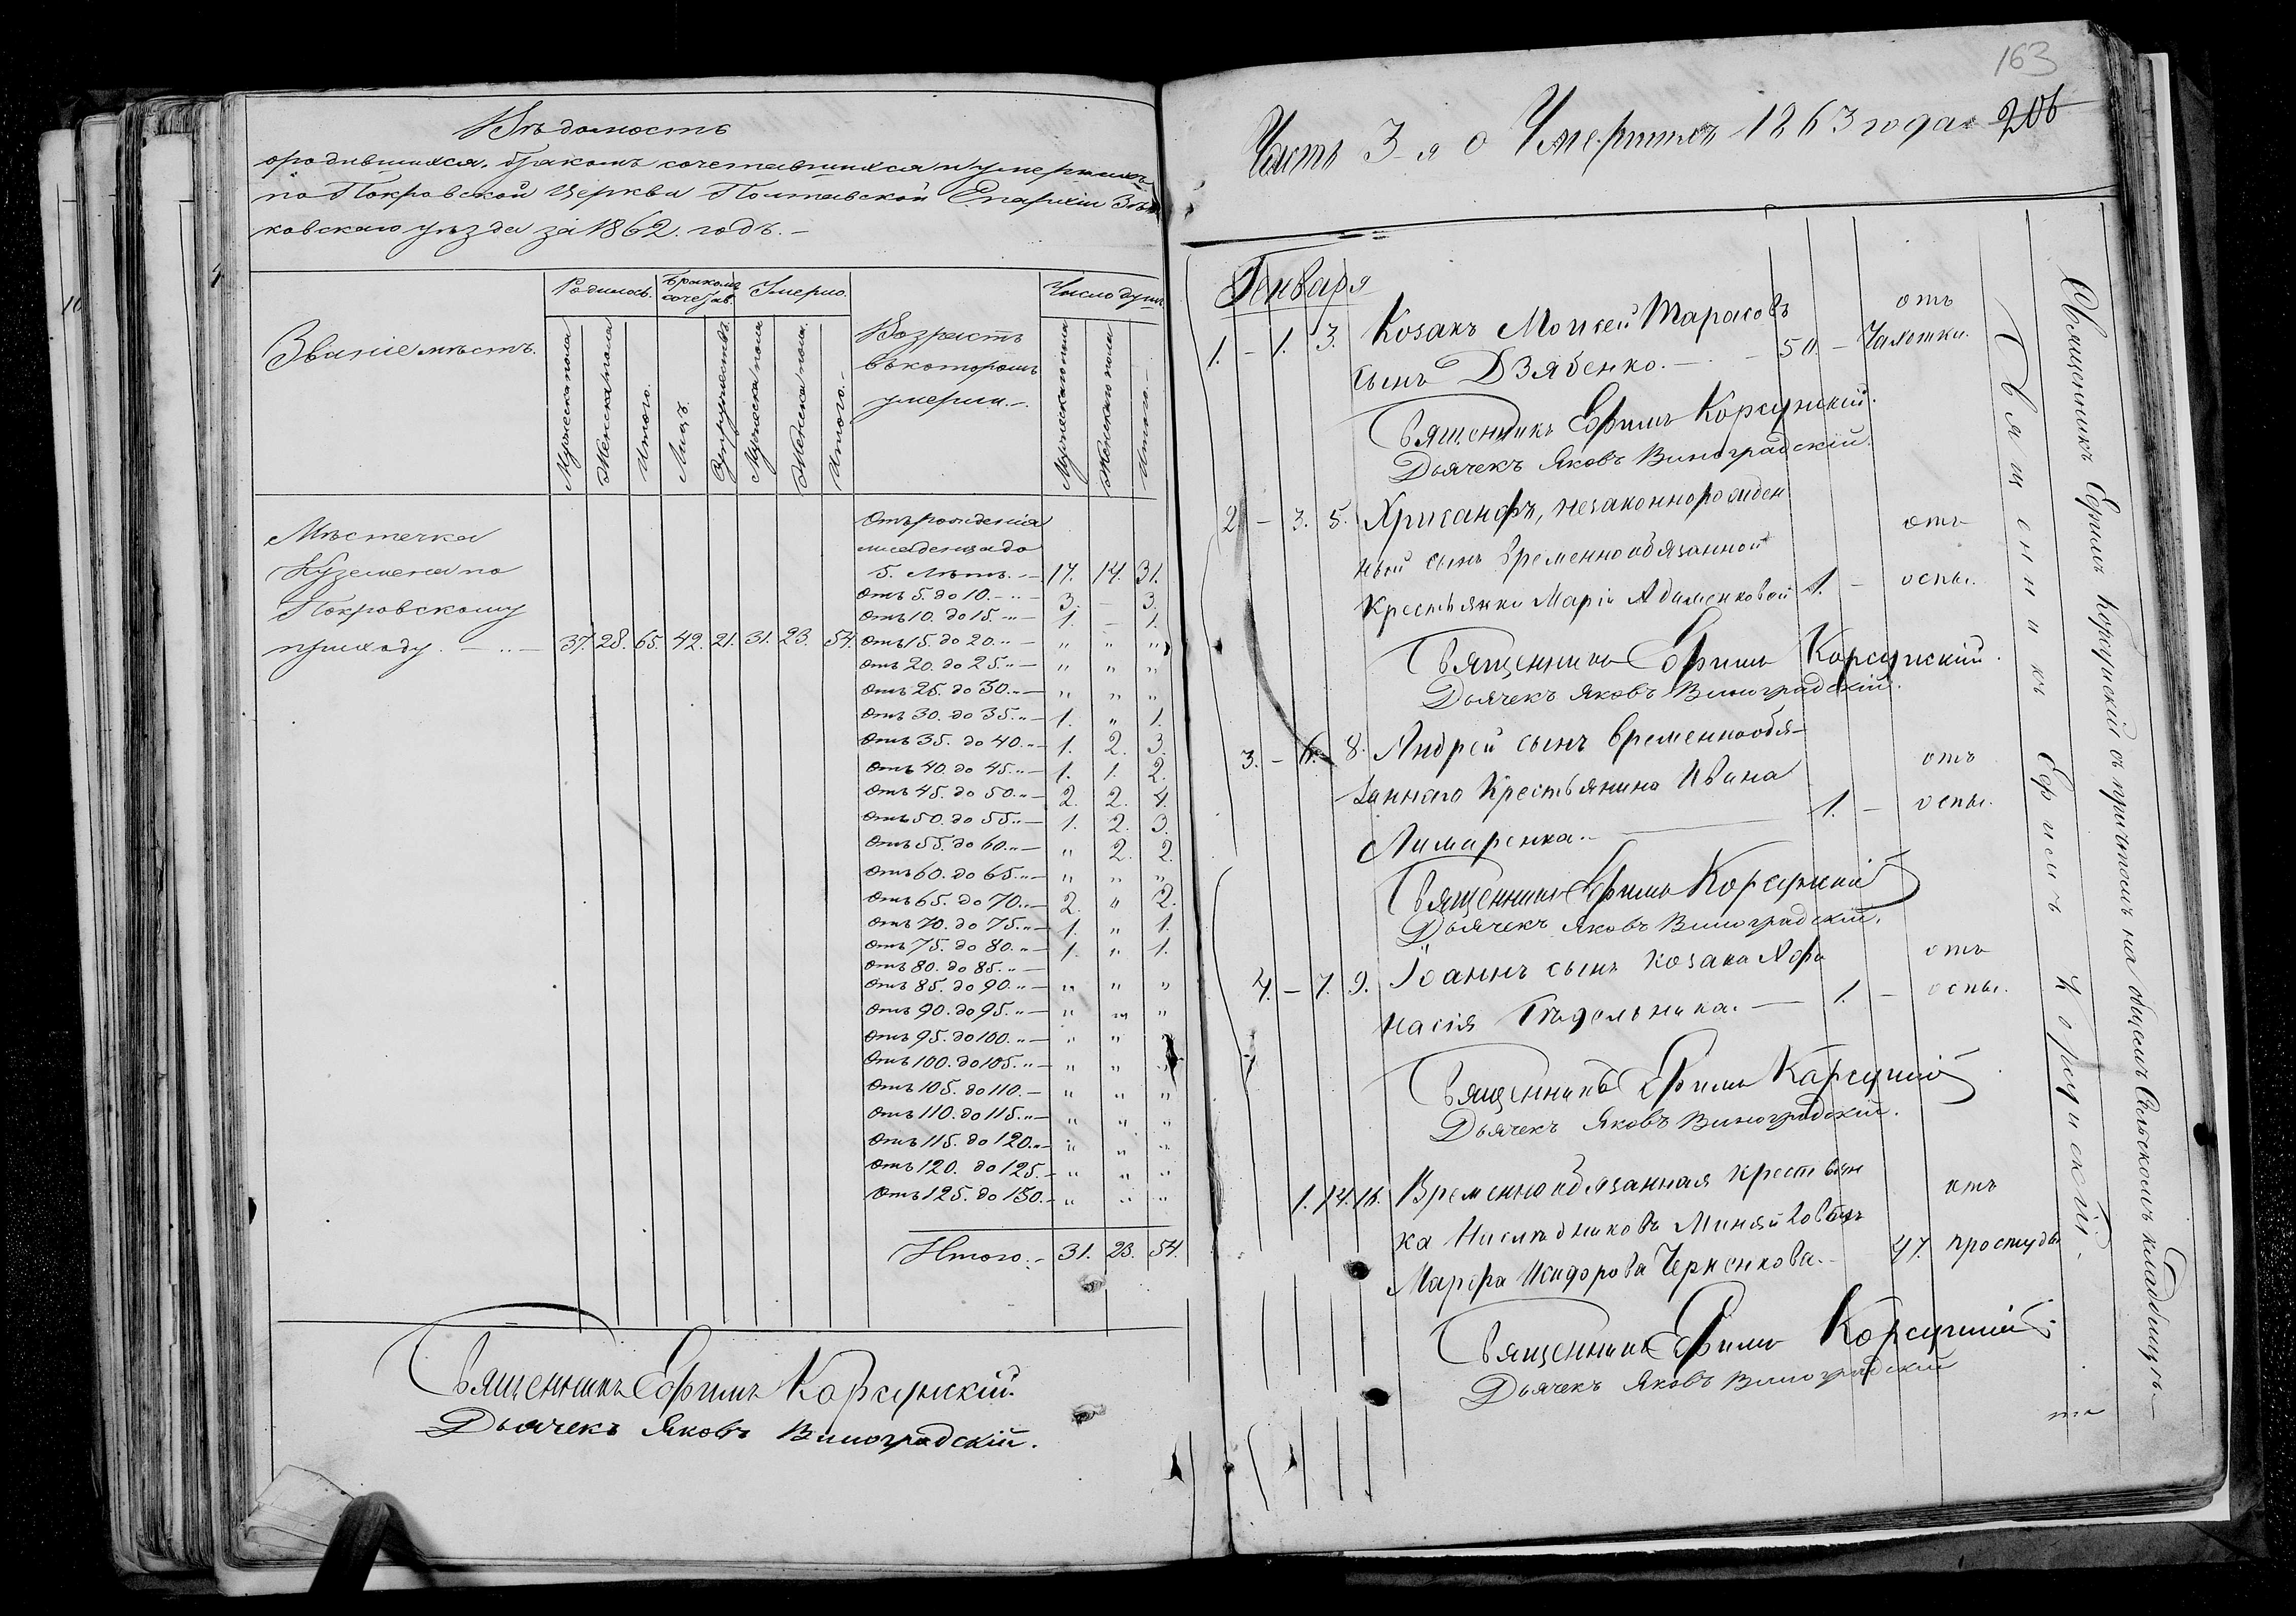 Вѣдомость
о родившихся, бракомъ сочетавшихся и умершихъ
по Покровской Церкви Полтавской Епархіи Зѣнь
ковскаго уѣзда за 1862. годъ. –
Званіе мѣстъ.
Родилось.
Бракомъ сочетав.
Умерло.
Возрастъ
въ которомъ
умерли. –
Число душъ
Мужеска пола
Женска пола
Итого.
Лицъ.
Супружествъ.
Мужеска пола
Женска пола.
Итого. –
Мужескаго пола
Женскаго пола
Итого –
Мѣстечка
Куземена по
Покровскому
приходу. – 37. 28. 65. 42. 21. 31. 23. 54.
Отъ рожденія
младенца до
5. Лѣтъ. – 17. 14. 31.
Отъ 5. до 10. – 3. – 3.
Отъ 10. до 15. „ – 1. – 1.
Отъ 15. до 20. „ – „ „ „
Отъ 20. до 25. „ – „ „ „
Отъ 25. до 30. „ – „ „ „
Отъ 30. до 35. „ – 1. „ 1.
Отъ 35. до 40. „ – 1. 2. 3.
Отъ 40. до 45. „ – 1. 1. 2.
Отъ 45. до 50. „ – 2. 2. 4.
Отъ 50. до 55. „ – 1. 2. 3.
Отъ 55. до 60. „ – „ 2. 2.
Отъ 60. до 65. „ – „ „ „
Отъ 65. до 70. „ – 2. „ 2.
Отъ 70. до 75. „ – 1. „ 1.
Отъ 75. до 80. „ – 1. „ 1.
Отъ 80. до 85. „ –
Отъ 85. до 90. „ – „ „ „
Отъ 90. до 95. „ – „ „ „
Отъ 95. до 100. „ – „ „ „
Отъ 100. до 105. „ – „ „ „
Отъ 105. до 110. – „ „ „
Отъ 110. до 115. „ – „ „ „
Отъ 115. до 120. „ – „ „ „
Отъ 120. до 125. – „ „ „
Отъ 125. до 130. – „ „ „
Итого. – 31. 23. 54.
Священникъ Ефимъ Корсунскій.
Дьячекъ Яковъ Виноградскій.
163
Часть 3-я о Умершихъ 1863 года 206
Генваря
1. – 1. 3. Козакъ Моисей Тарасовъ
сынъ Дзябенко. – 50. – отъ
Чахотки.
Священникъ Ефимъ Корсунскій.
Дьячекъ Яковъ Виноградскій.
2 – 3. 5. Хрисанфъ, незаконнорожден
ный сынъ временнообязанной
Крестьянки Маріи Адаменковой 1. – отъ
оспы.
Священникъ Ефимъ Корсунскій.
Дьячекъ Яковъ Виноградскій.
3. – 6. 8. Андрей сынъ временнообя–
заннаго Крестьянина Ивана
Лимаренка. – 1. – отъ
оспы.
Священникъ Ефимъ Корсунскій
Дьячекъ Яковъ Виноградскій.
4. – 7. 9. Іоаннъ сынъ козака Афа
насія – 1. – отъ
оспы.
Священникъ Ефимъ Корсунскій
Дьячекъ Яковъ Виноградскій.
1. 14. 16. Временнообязанная крестьян
ка Наслѣдниковъ
Марфа Исидорова Черненкова. – 47. отъ
простуды
Священникъ Ефимъ Корсунскій.
Дьячекъ Яковъ Виноградскій
Священникъ Ефимъ Корсунскій.
Священникъ Ефимъ Корсунскій съ причтомъ на общемъ Сельскомъ кладбищѣ –